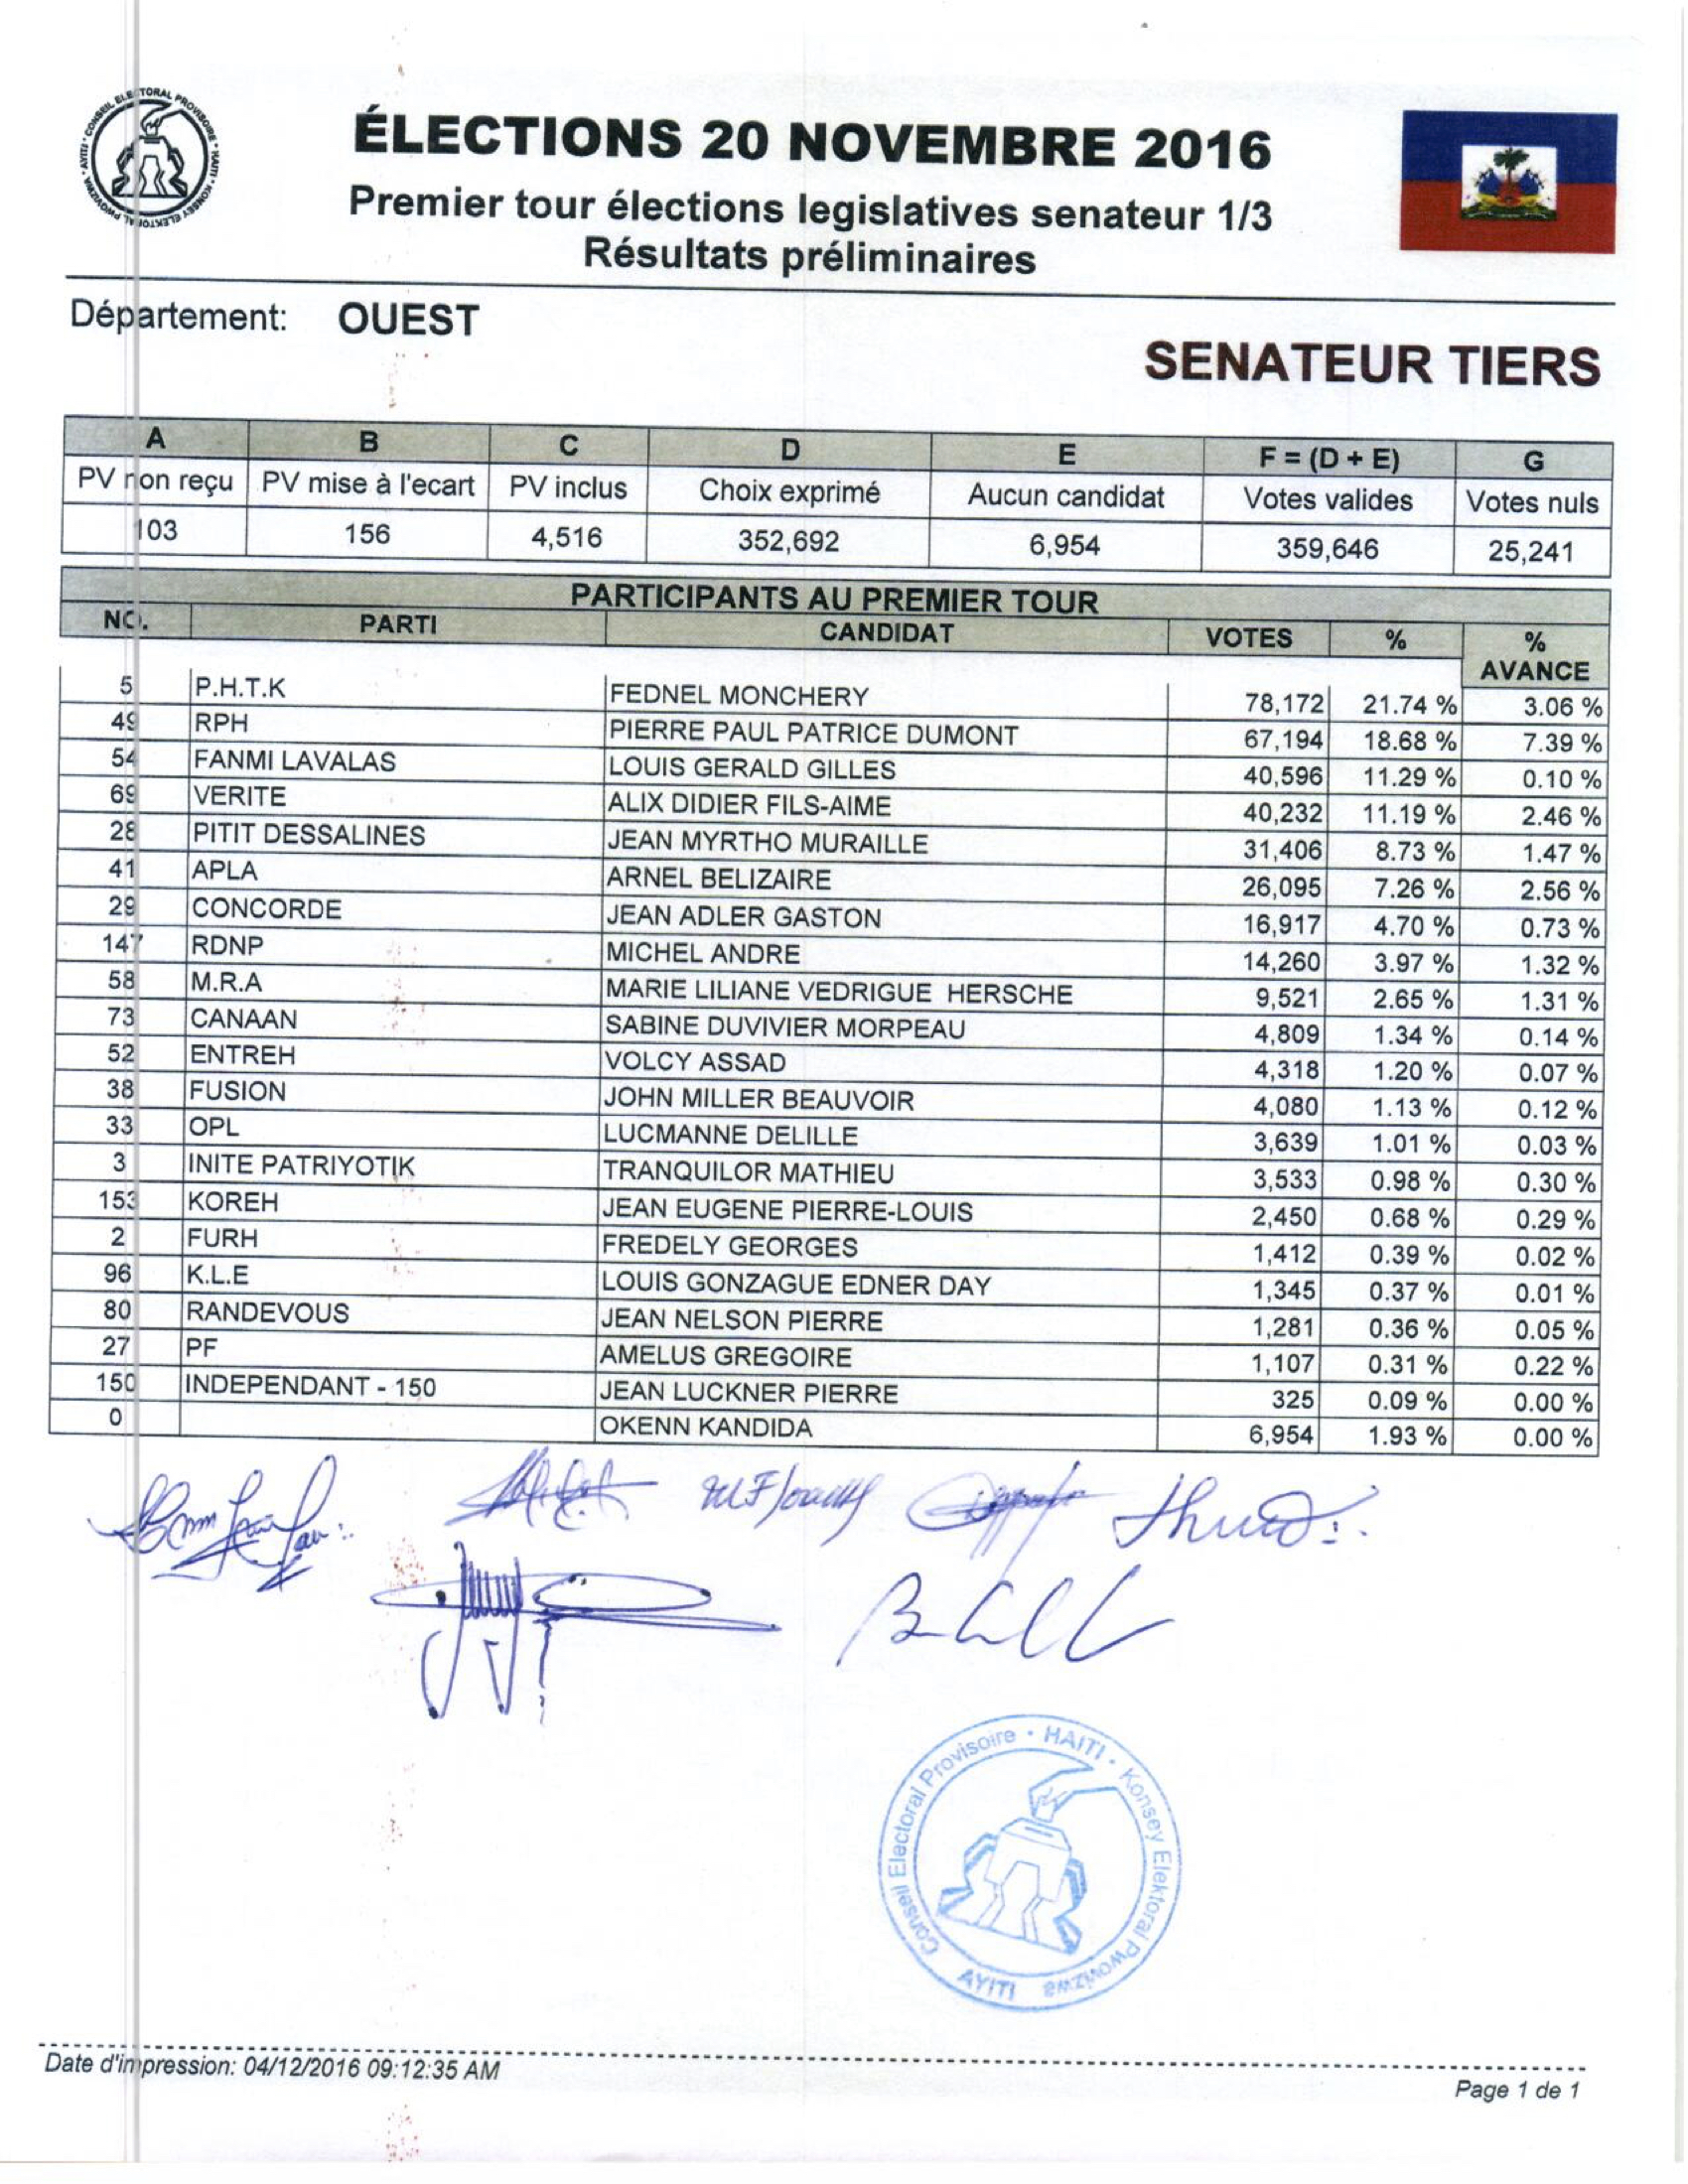 CONSEIL ELECTORAL PROVISOIRE • HAITI • KONSEY ELEKTORAL PWOVIZWA • AYITI •
ÉLECTIONS 20 NOVEMBRE 2016
Premier tour élections legislatives senateur 1/3
Résultats préliminaires
Département: OUEST
SENATEUR TIERS
A B C D E F = (D + E) G
PV non reçu PV mise à l'ecart PV inclus Choix exprimé Aucun candidat Votes valides Votes nuls
103 156 4,516 352,692 6,954 359,646 25,241
PARTICIPANTS AU PREMIER TOUR
NO. PARTI CANDIDAT VOTES % % AVANCE
5 P.H.T.K FEDNEL MONCHERY 78,172 21.74 % 3.06 %
49 RPH PIERRE PAUL PATRICE DUMONT 67,194 18.68 % 7.39 %
54 FANMI LAVALAS LOUIS GERALD GILLES 40,596 11.29 % 0.10 %
69 VERITE ALIX DIDIER FILS-AIME 40,232 11.19 % 2.46 %
28 PITIT DESSALINES JEAN MYRTHO MURAILLE 31,406 8.73 % 1.47 %
41 APLA ARNEL BELIZAIRE 26,095 7.26 % 2.56 %
29 CONCORDE JEAN ADLER GASTON 16,917 4.70 % 0.73 %
147 RDNP MICHEL ANDRE 14,260 3.97 % 1.32 %
58 M.R.A MARIE LILIANE VEDRIGUE HERSCHE 9,521 2.65 % 1.31 %
73 CANAAN SABINE DUVIVIER MORPEAU 4,809 1.34 % 0.14 %
52 ENTREH VOLCY ASSAD 4,318 1.20 % 0.07 %
38 FUSION JOHN MILLER BEAUVOIR 4,080 1.13 % 0.12 %
33 OPL LUCMANNE DELILLE 3,639 1.01 % 0.03 %
3 INITE PATRIYOTIK TRANQUILOR MATHIEU 3,533 0.98 % 0.30 %
153 KOREH JEAN EUGENE PIERRE-LOUIS 2,450 0.68 % 0.29 %
2 FURH FREDELY GEORGES 1,412 0.39 % 0.02 %
96 K.L.E LOUIS GONZAGUE EDNER DAY 1,345 0.37 % 0.01 %
80 RANDEVOUS JEAN NELSON PIERRE 1,281 0.36 % 0.05 %
27 PF AMELUS GREGOIRE 1,107 0.31 % 0.22 %
150 INDEPENDANT - 150 JEAN LUCKNER PIERRE 325 0.09 % 0.00 %
0 OKENN KANDIDA 6,954 1.93 % 0.00 %
Conseil Electoral Provisoire • HAITI • Konsey Elektoral Pwovizwa AYITI
Date d'impression: 04/12/2016 09:12:35 AM
Page 1 de 1